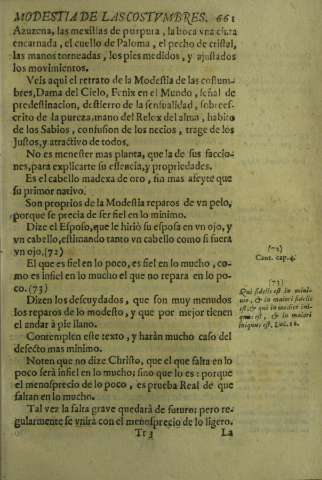 MODESTIA DE LAS COSTVMBRES. 661
Azuzena, las mexillas de purpura, la boca vna cinta
encarnada, el cuello de Paloma, el pecho de cristal,
las manos torneadas, los pies medidos, y ajustados
los movimientos.
Veis aqui el retrato de la Modestia de las costum-
bres, Dama del Cielo, Fenix en el Mundo, señal de
predestinacion, destierro de la sensualidad, sobrees-
crito de la pureza, mano del Relox del alma, habito
de los Sabios, confusion de los necios, trage de los
Justos, y atractivo de todos.
No es menester mas planta, que la de sus faccio-
nes, para explicarte su essencia, y propriedades.
Es el cabello madexa de oro, sin mas afeyte que
su primor nativo.
Son proprios de la Modestia reparos de vn pelo,
porque se precia de ser fiel en lo minimo.
Dize el Esposo, que le hiriò su esposa en vn ojo, y
vn cabello, estimando tanto vn cabello como si fuera
vn ojo. (72)
El que es fiel en lo poco, es fiel en lo mucho, co-
mo es infiel en lo mucho el que no repara en lo po-
co. (73)
Dizen los descuydados, que son muy menudos
los reparos de lo modesto, y que por mejor tienen
el andar à pie llano.
Contemplen este texto, y haràn mucho caso del
defecto mas minimo.
Noten que no dize Christo, que el que falta en lo
poco serà infiel en lo mucho; sino que lo es: porque
el menosprecio de lo poco, es prueba Real de que
faltan en lo mucho.
Tal vez la falta grave quedarà de futuro: pero re-
gularmente se vnirà con el menosprecio de lo ligero.
Tt 3 La
(72)
Cant. cap. 4.
(73)
Qui fidelis est in mini-
mo, & in maiori fidelis
est: & qui in modico ini-
quus est, & in maiori
iniquus est, Luc. 16.